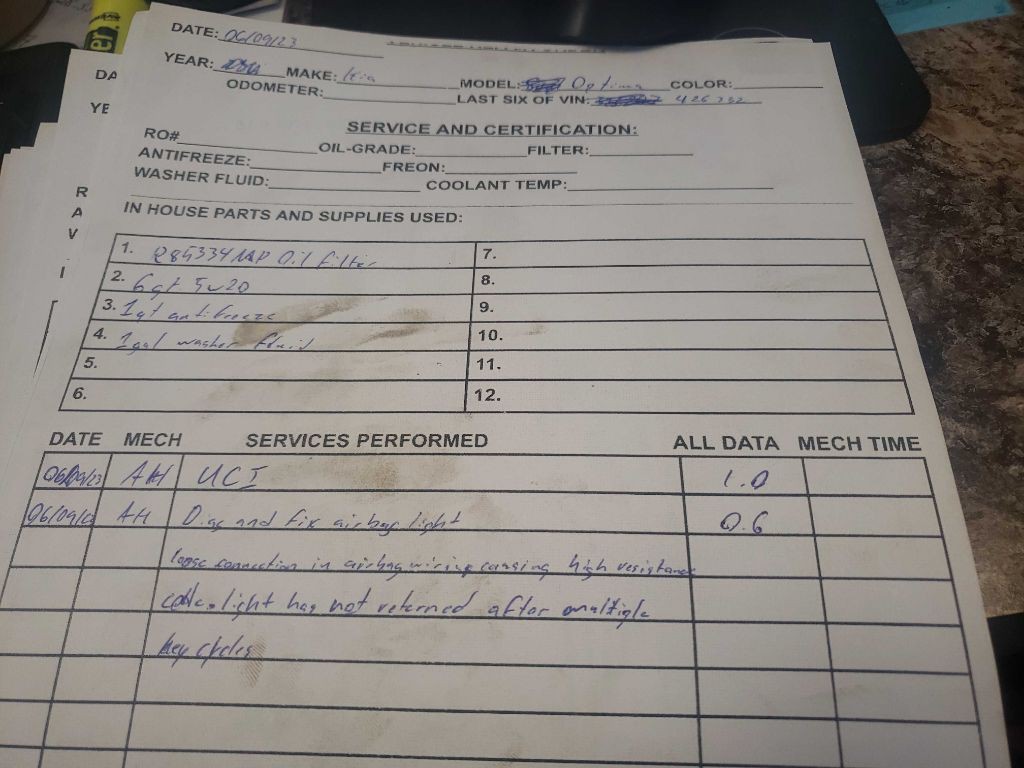 er.
DATE: 06/09/23
YEAR: MAKE: Kia MODEL: Optima COLOR:
ODOMETER: LAST SIX OF VIN: 426732
SERVICE AND CERTIFICATION:
RO# OIL-GRADE: FILTER:
ANTIFREEZE: FREON:
WASHER FLUID: COOLANT TEMP:
IN HOUSE PARTS AND SUPPLIES USED:
1. R85334MP Oil filter 7.
2. 6qt 5w20 8.
3. 1qt antifreeze 9.
4. 1gal washer fluid 10.
5. 11.
6. 12.
DATE MECH SERVICES PERFORMED ALL DATA MECH TIME
06/09/23 AH UCI 1.0
06/09/23 AH Diag and fix airbag light 0.6
loose connection in airbag wiring causing high resistance
code. light has not returned after multiple
key cycles
DA
YE
R
A
V
I